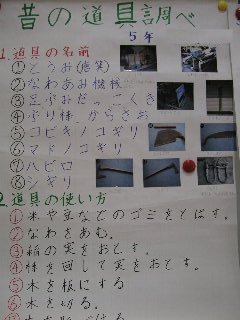 昔の道具言周べ
5年
1.道具の名前
①とうみ(唐箕)
②なわあみ機械
③足ぶみだっこくき
④ぶり棒 からさお
⑤コビキノコギリ
⑥マドノコギリ
⑦ハビロ
⑧シギリ
2.道具の使い方
①米や豆などのゴミをとばす。
②なわをあむ。
③稲の実をおとす。
④棒を回して実をおとす。
⑤木を板にする
⑥木を切る。